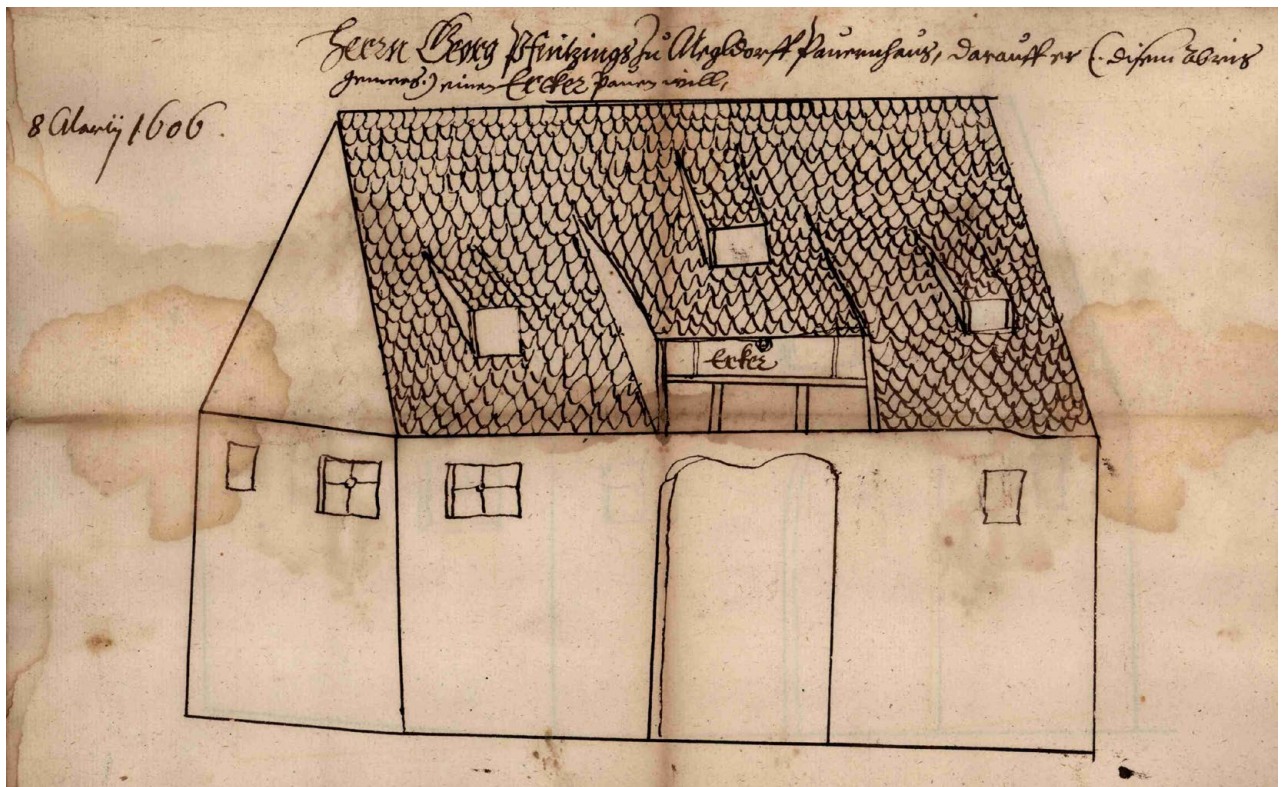 Herrn Georg Pfintzings zu Megldorff Pauernhaus, darauff er (: disem abris
gemees :) einen Ercker pauen will,
8 Martij 1606.
Erker